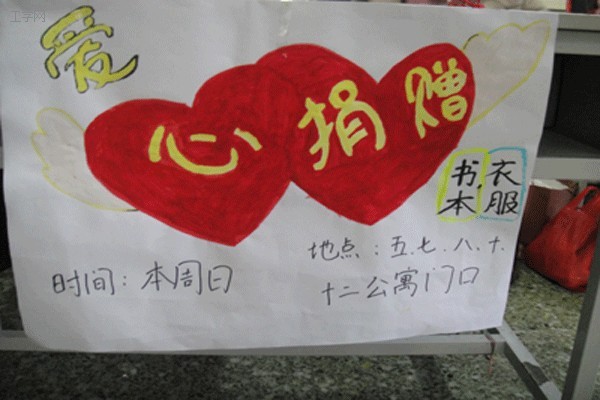 工学网
爱心捐赠
书本、衣服
时间：本周日
地点：五、七、八、十、
十二公寓门口